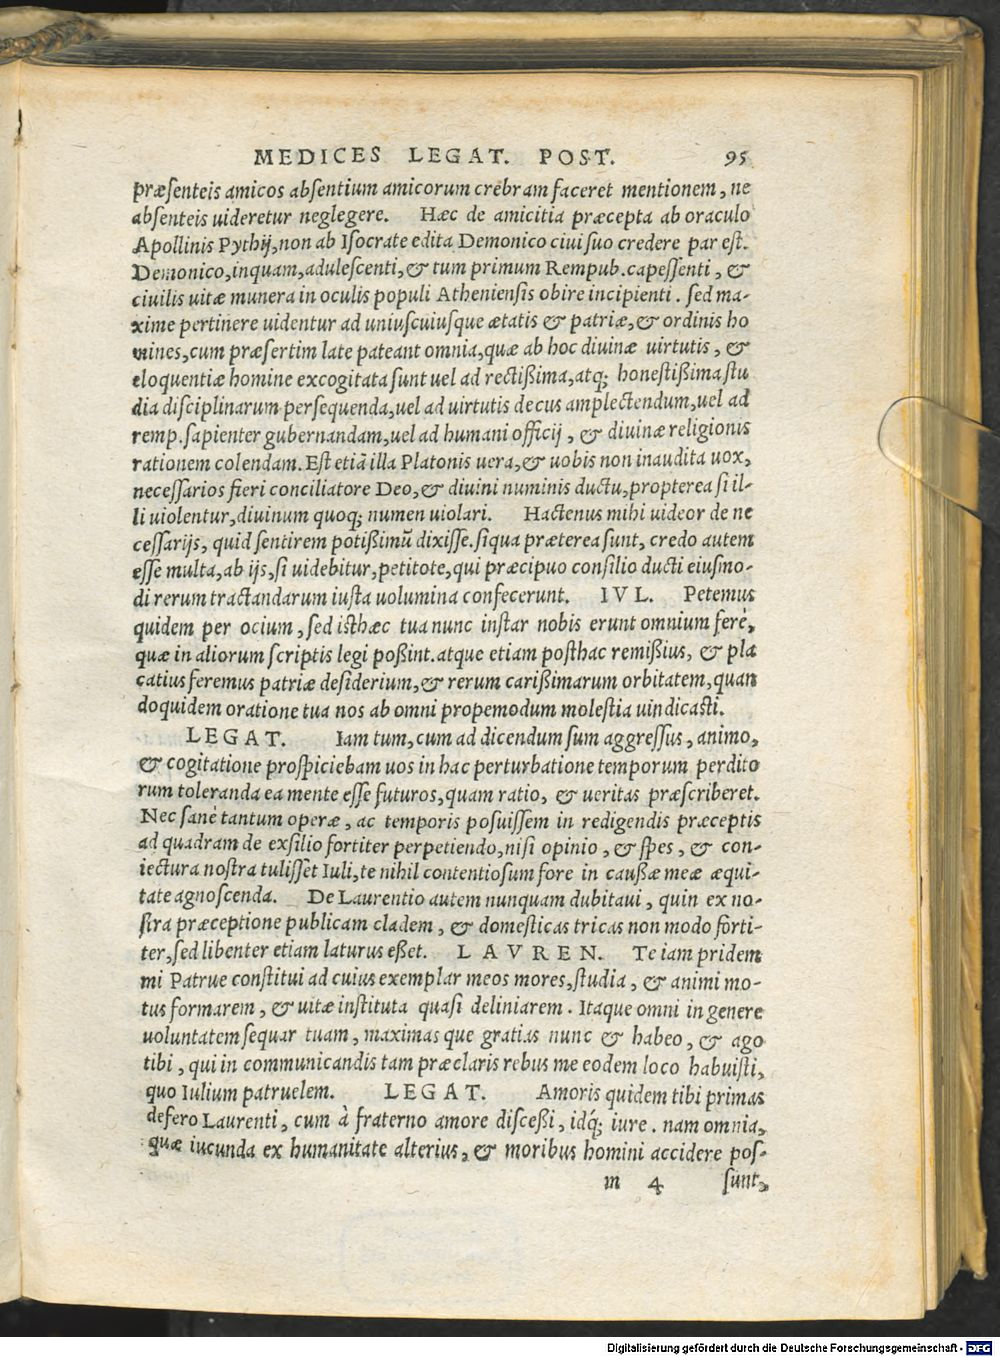 MEDICES LEGAT. POST. 95
præſenteis amicos abſentium amicorum crebram faceret mentionem, ne
abſenteis uideretur neglegere. Hæc de amicitia præcepta ab oraculo
Apollinis Pythij, non ab Iſocrate edita Demonico ciui ſuo credere par eſt.
Demonico, inquam, aduleſcenti, & tum primum Rempub. capeſſenti, &
ciuilis uitæ munera in oculis populi Athenienſis obire incipienti. ſed ma-
xime pertinere uidentur ad uniuſcuiuſque ætatis & patriæ, & ordinis ho
mines, cum præſertim late pateant omnia, quæ ab hoc diuinæ uirtutis, &
eloquentiæ homine excogitata ſunt uel ad rectißima, atq; honeſtißima ſtu
dia diſciplinarum perſequenda, uel ad uirtutis decus amplectendum, uel ad
remp. ſapienter gubernandam, uel ad humani officij, & diuinæ religionis
rationem colendam. Eſt etiã illa Platonis uera, & uobis non inaudita uox,
neceſſarios fieri conciliatore Deo, & diuini numinis ductu, propterea ſi il-
li uiolentur, diuinum quoq; numen uiolari. Hactenus mihi uideor de ne
ceſſarijs, quid ſentirem potißimũ dixiſſe. ſiqua præterea ſunt, credo autem
eſſe multa, ab ijs, ſi uidebitur, petitote, qui præcipuo conſilio ducti eiuſmo-
di rerum tractandarum iuſta uolumina confecerunt. IVL. Petemus
quidem per ocium, ſed iſthæc tua nunc inſtar nobis erunt omnium ferè,
quæ in aliorum ſcriptis legi poßint. atque etiam poſthac remißius, & pla
catius feremus patriæ deſiderium, & rerum carißimarum orbitatem, quan
doquidem oratione tua nos ab omni propemodum moleſtia uindicaſti.
LEGAT. Iam tum, cum ad dicendum ſum aggreſſus, animo,
& cogitatione proſpiciebam uos in hac perturbatione temporum perdito
rum toleranda ea mente eſſe futuros, quam ratio, & ueritas præſcriberet.
Nec ſanè tantum operæ, ac temporis poſuiſſem in redigendis præceptis
ad quadram de exſilio fortiter perpetiendo, niſi opinio, & ſpes, & con-
iectura noſtra tuliſſet Iuli, te nihil contentioſum fore in cauſſæ meæ æqui-
tate agnoſcenda. De Laurentio autem nunquam dubitaui, quin ex no-
ſtra præceptione publicam cladem, & domeſticas tricas non modo forti-
ter, ſed libenter etiam laturus eßet. LAVREN. Te iam pridem
mi Patrue conſtitui ad cuius exemplar meos mores, ſtudia, & animi mo-
tus formarem, & uitæ inſtituta quaſi deliniarem. Itaque omni in genere
uoluntatem ſequar tuam, maximas que gratias nunc & habeo, & ago
tibi, qui in communicandis tam præclaris rebus me eodem loco habuiſti,
quo Iulium patruelem. LEGAT. Amoris quidem tibi primas
defero Laurenti, cum à fraterno amore diſceßi, idq́; iure. nam omnia,
quæ iucunda ex humanitate alterius, & moribus homini accidere poſ-
m 4 ſunt,
Digitalisierung gefördert durch die Deutsche Forschungsgemeinschaft - DFG